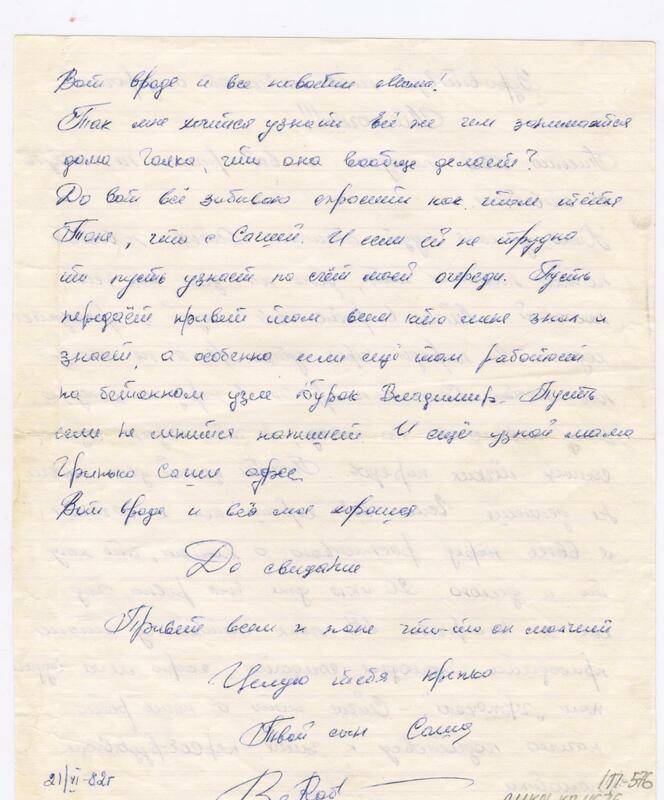 Вот вроде и все новости мама!
Так мне хочится узнать всё же чем занимается
дома Галка, что она вообще делает?
Да вот всё забываю спросить как там тётка
Таня, что с Сашей. И если ей не трудна
то пусть узнает на счёт моей очереди. Пусть
передаёт привет там всем кто меня знал и
знает, а особенно если ещё там работает
на бетонном узле Бурак Владимир. Пусть
если не ленится напишет И ещё узнай мама
Гринько Саши адрес
Вот вроде и всё мое хорошая
До свидание
Привет всем и папе что-то он молчит
Целую тебя крепко
Твой сын Саша
21/VI-82г
1П-576